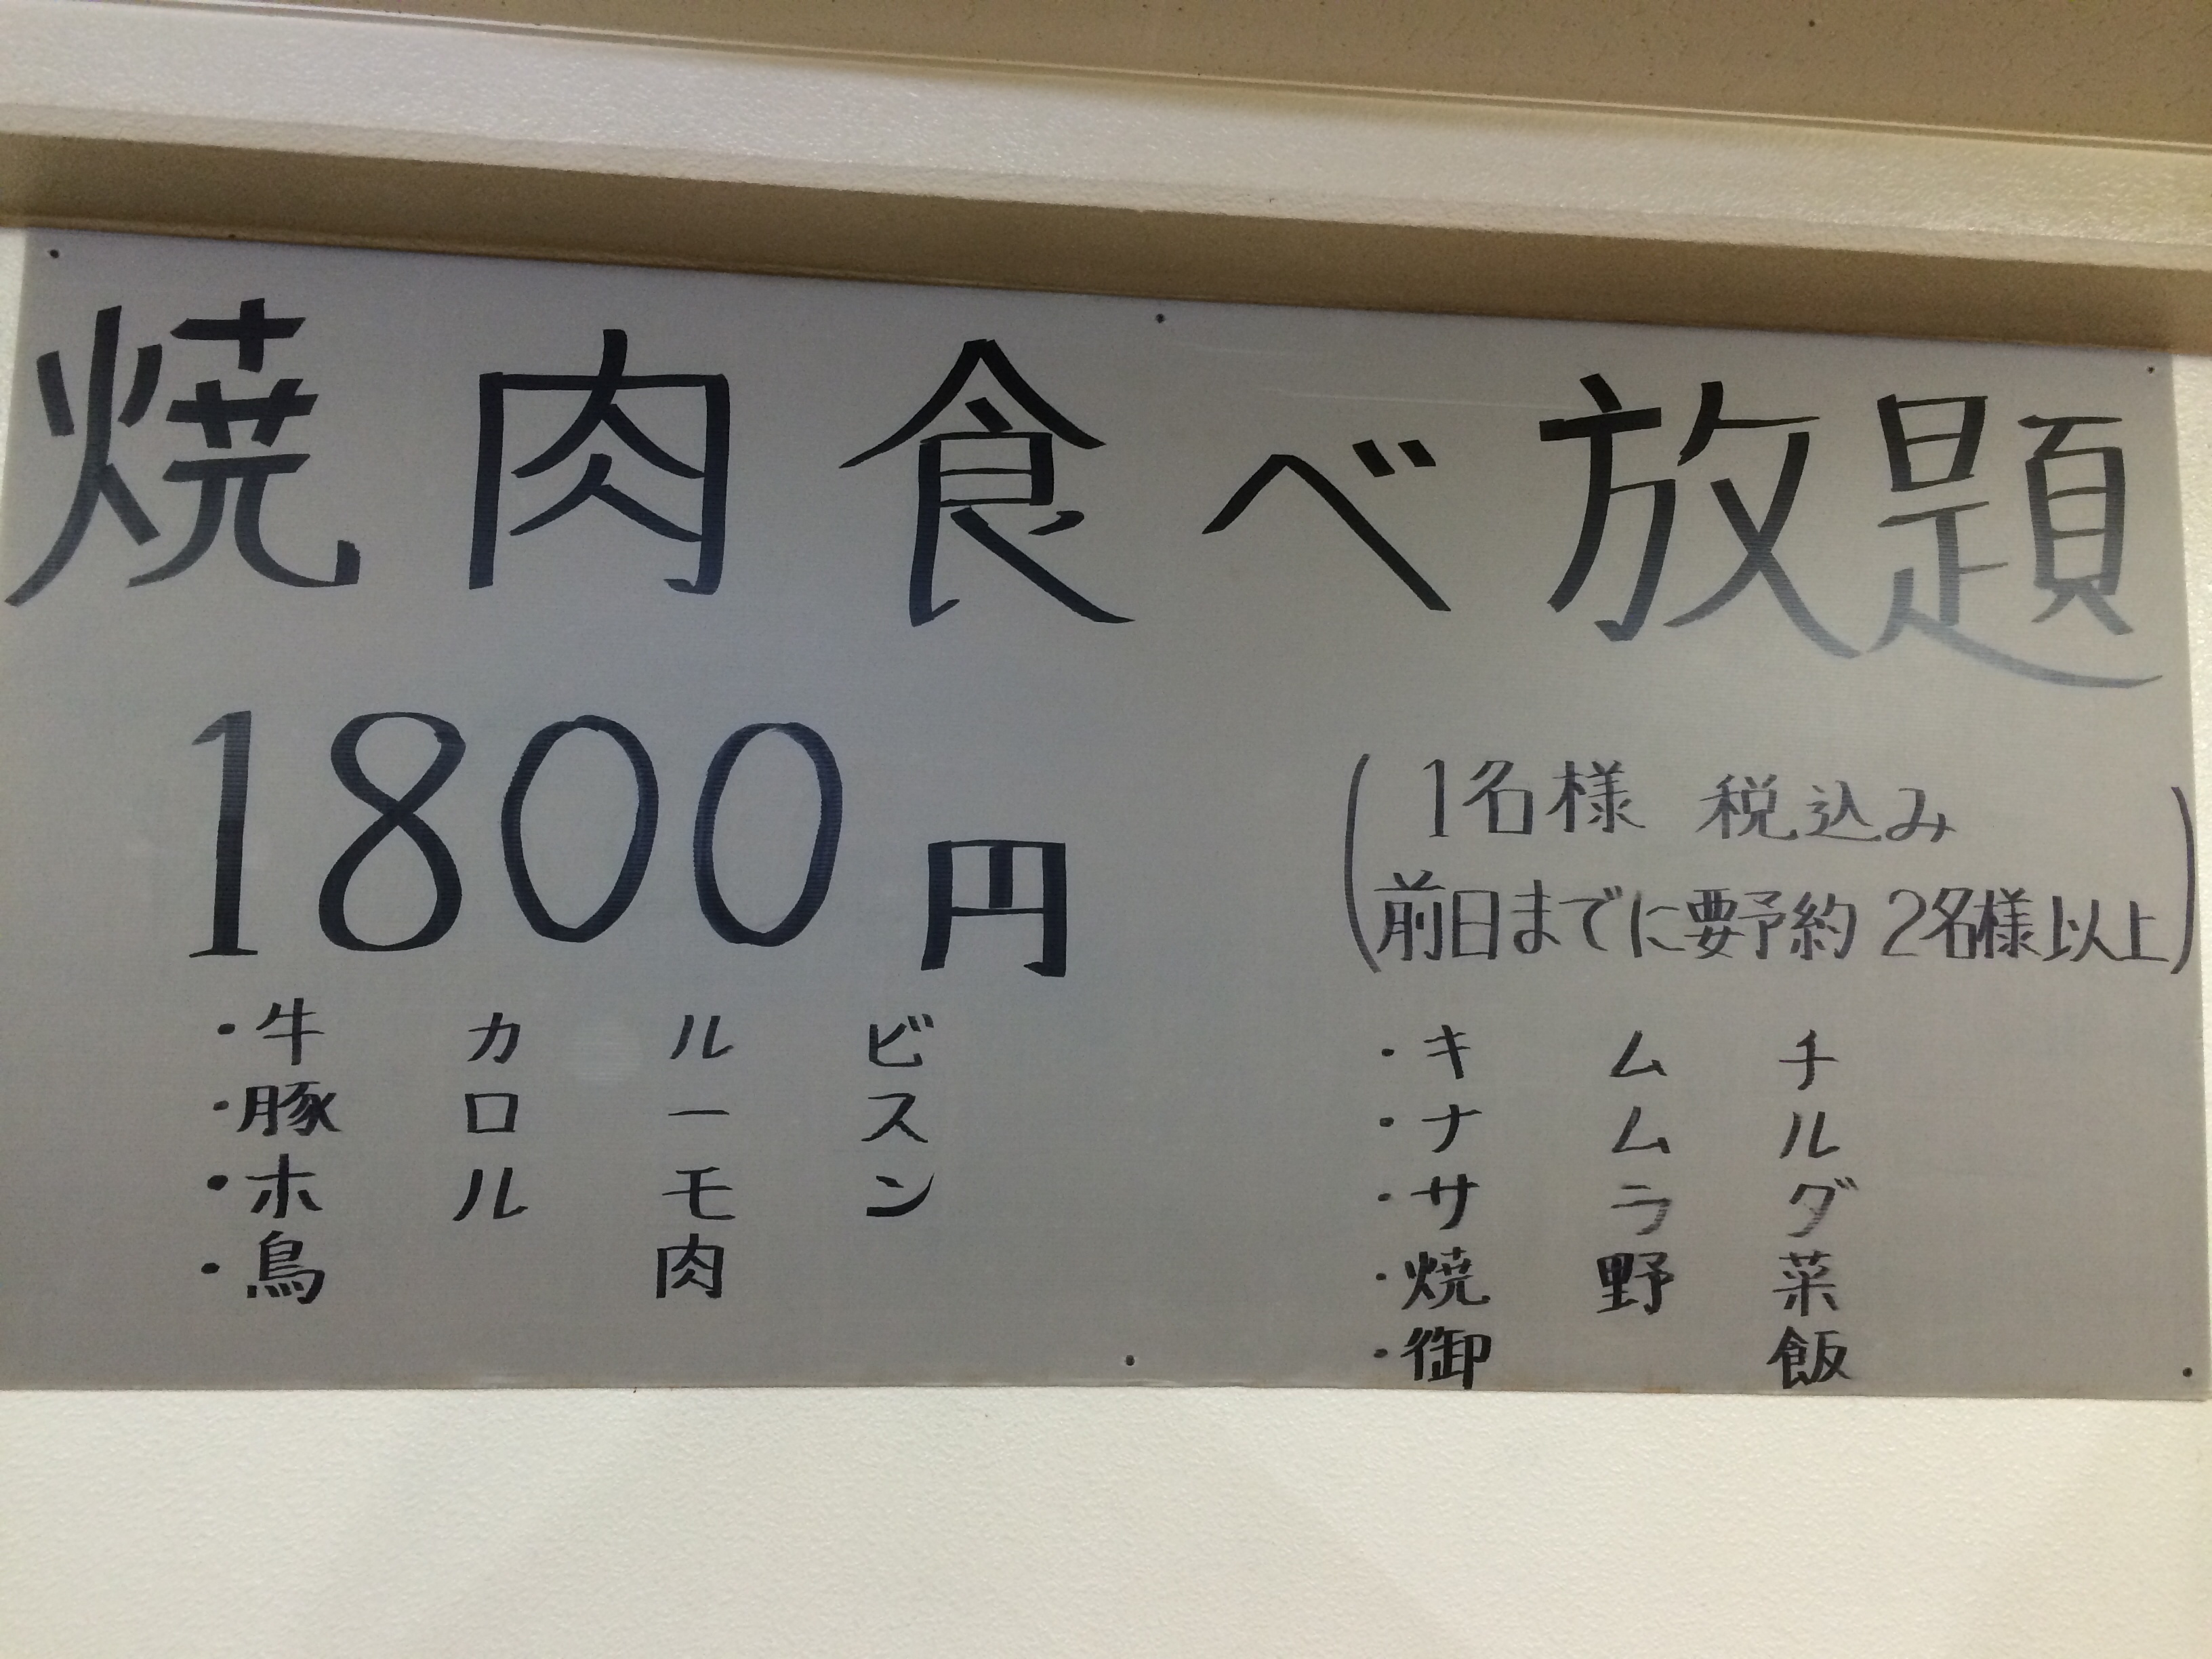 焼肉食べ放題
1800円
(1名様 税込み
前日までに要予約 2名様以上)
・牛カルビ
・豚ロース
・ホルモン
・鳥肉
・キムチ
・ナムル
・サラダ
・焼野菜
・御飯